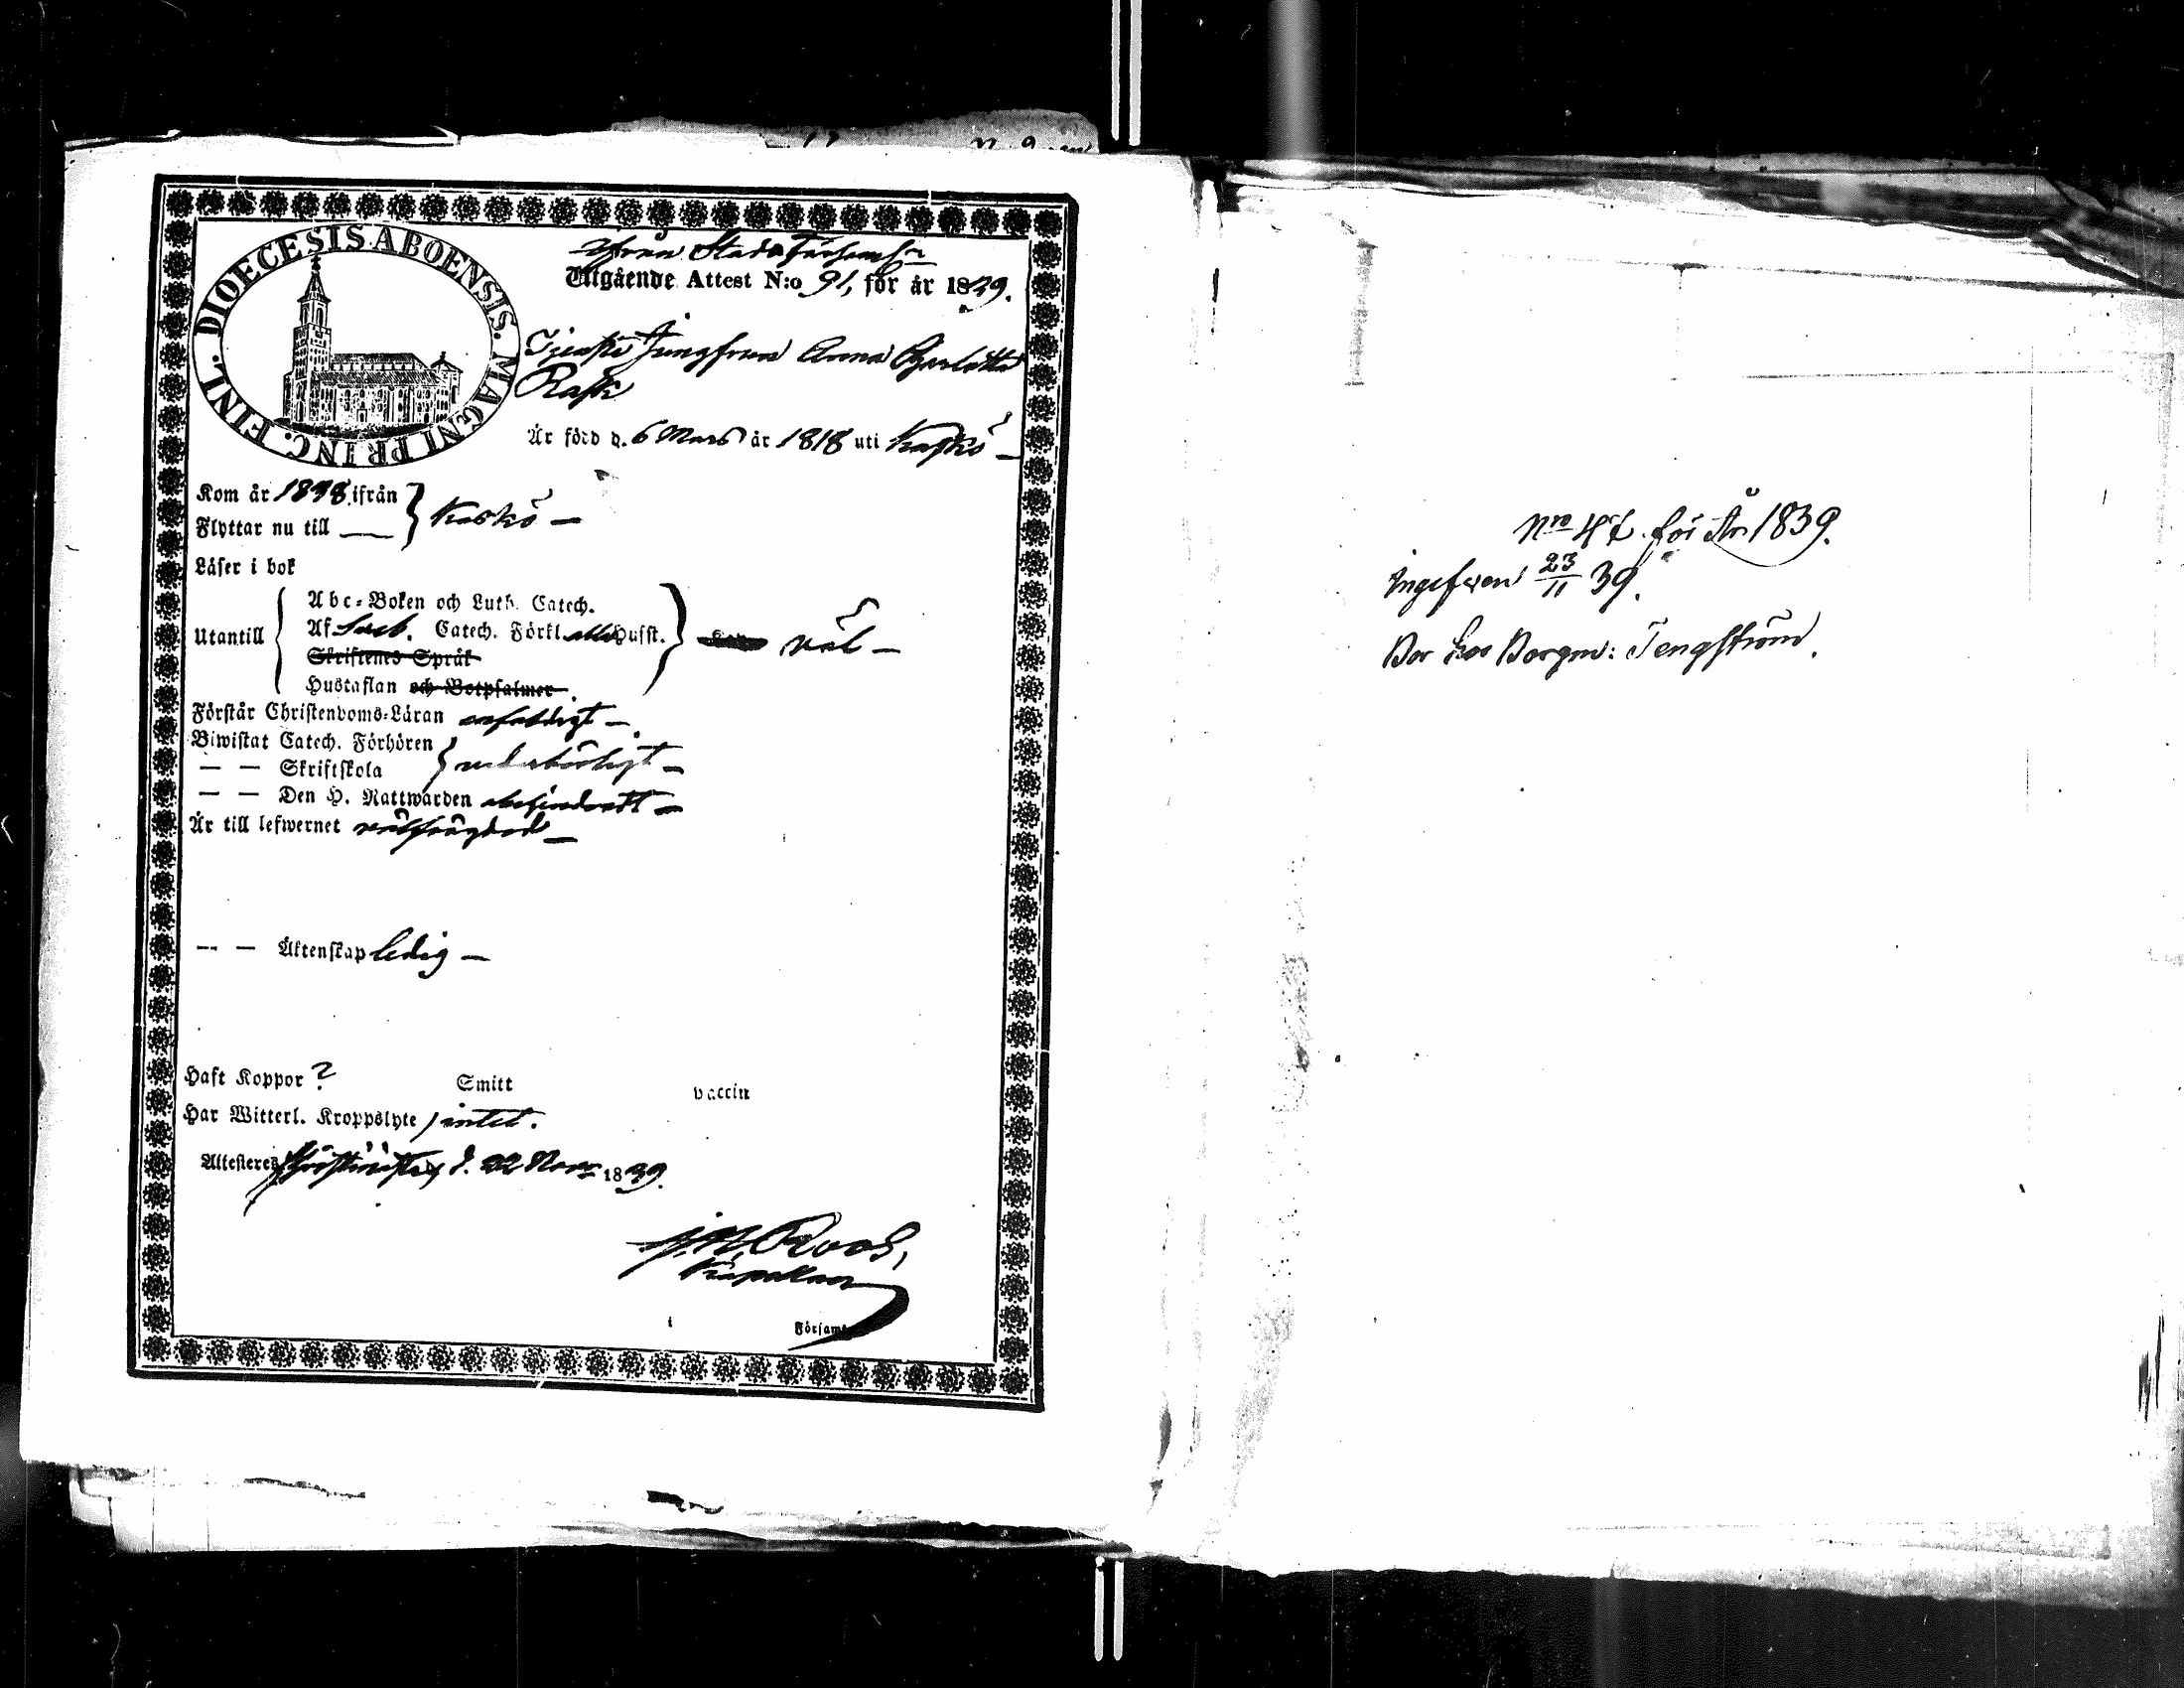 DIOECESIS ABOENSIS. MAGNI PRINC. FINL.
ifrån Stads Församl:n
Utgående Attest N:o 91, för år 1839.
Tjenste Jungfrun Anna Charlotta
Rask
Är född d. 6 Mars år 1818 uti Kaskö –
Kom år 1838 ifrån
Flyttar nu till —
} Kaskö –
Läser i bok
Utantill
Abc-Boken och Luth. Catech.
Af Sveb. Catech. Förkl. alla Hufst.
Skriftenes Språk
Hustaflan och Botpsalmer
väl –
Förstår Christendoms-Läran enfaldigt –
Biwistat Catech. Förhören
— — Skriftskola
} vederbörligt –
— — Den H. Nattwarden obehindradt –
Är till lefwernet välfrägdad –
— — Äktenskap ledig –
Haft Koppor ? Smitt vaccin
Har Witterl. Kroppslyte intet.
Attesteres d. 22 Nov. 1839.
Roos,
Kapellan
i Församl
Nro 47. för År 1839.
Ingifven 23/11 39.
Bor hos Borgm: Tengström.